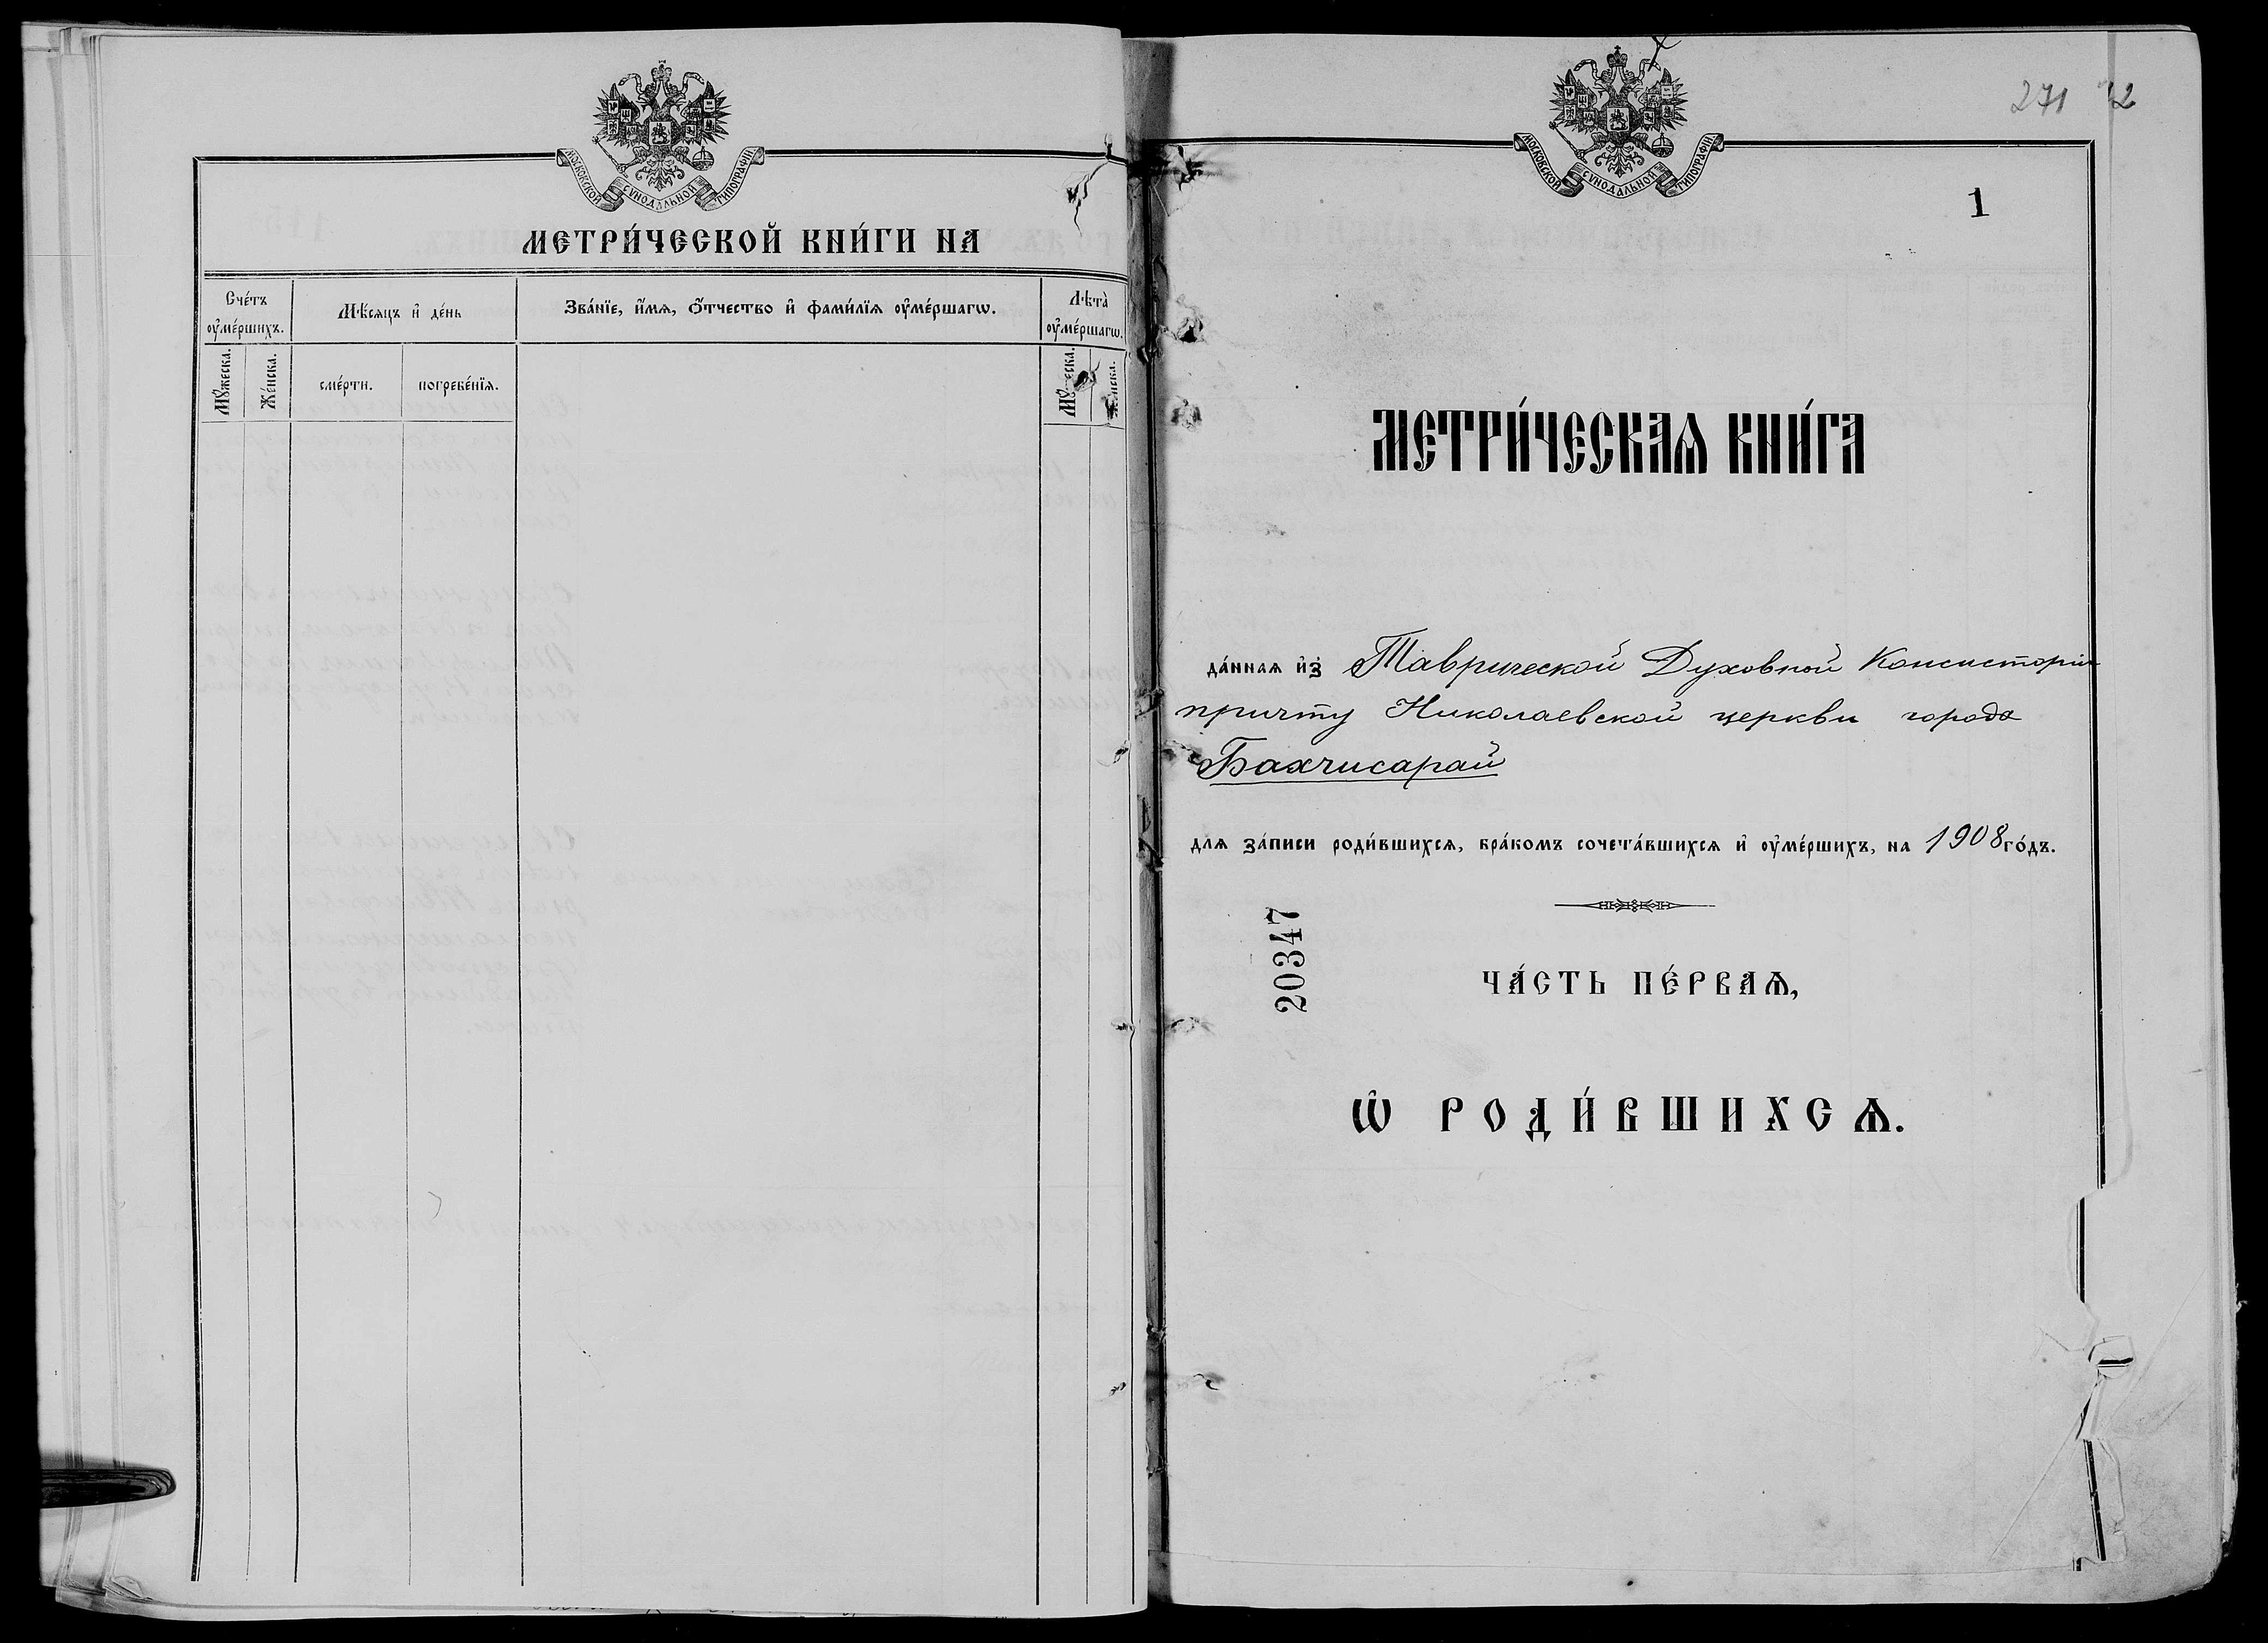 МОСКОВСКОЙ СѴНОДАЛЬНОЙ ТИПОГРАФІИ.
МЕТРИ́ЧЕСКОЙ КНИ́ГИ НА
Сче́тъ ᲂу҆ме́ршихъ.
Мѣ́сяцъ и҆ де́нь
Зва́нїе, и҆́мѧ, ѻ҆́тчество и҆ фами́лїѧ ᲂу҆ме́ршагѡ.
Лѣта̀ ᲂу҆ме́ршагѡ.
Мꙋ́жеска.
Же́нска.
сме́рти.
погребе́нїѧ.
271
МОСКОВСКОЙ СѴНОДАЛЬНОЙ ТИПОГРАФІИ.
1
МЕТРИ́ЧЕСКАѦ КНИ́ГА
да́ннаѧ и҆з̾ Таврической Духовной Консисторіи
причту Николаевской церкви города
Бахчисарай
длѧ за́писи роди́вшихсѧ, бра́комъ сочета́вшихсѧ и҆ ᲂу҆ме́ршихъ, на 1908 го́дъ.
20347
ЧА́СТЬ ПЕ́РВАѦ,
Ѽ РОДИ́ВШИХСѦ.